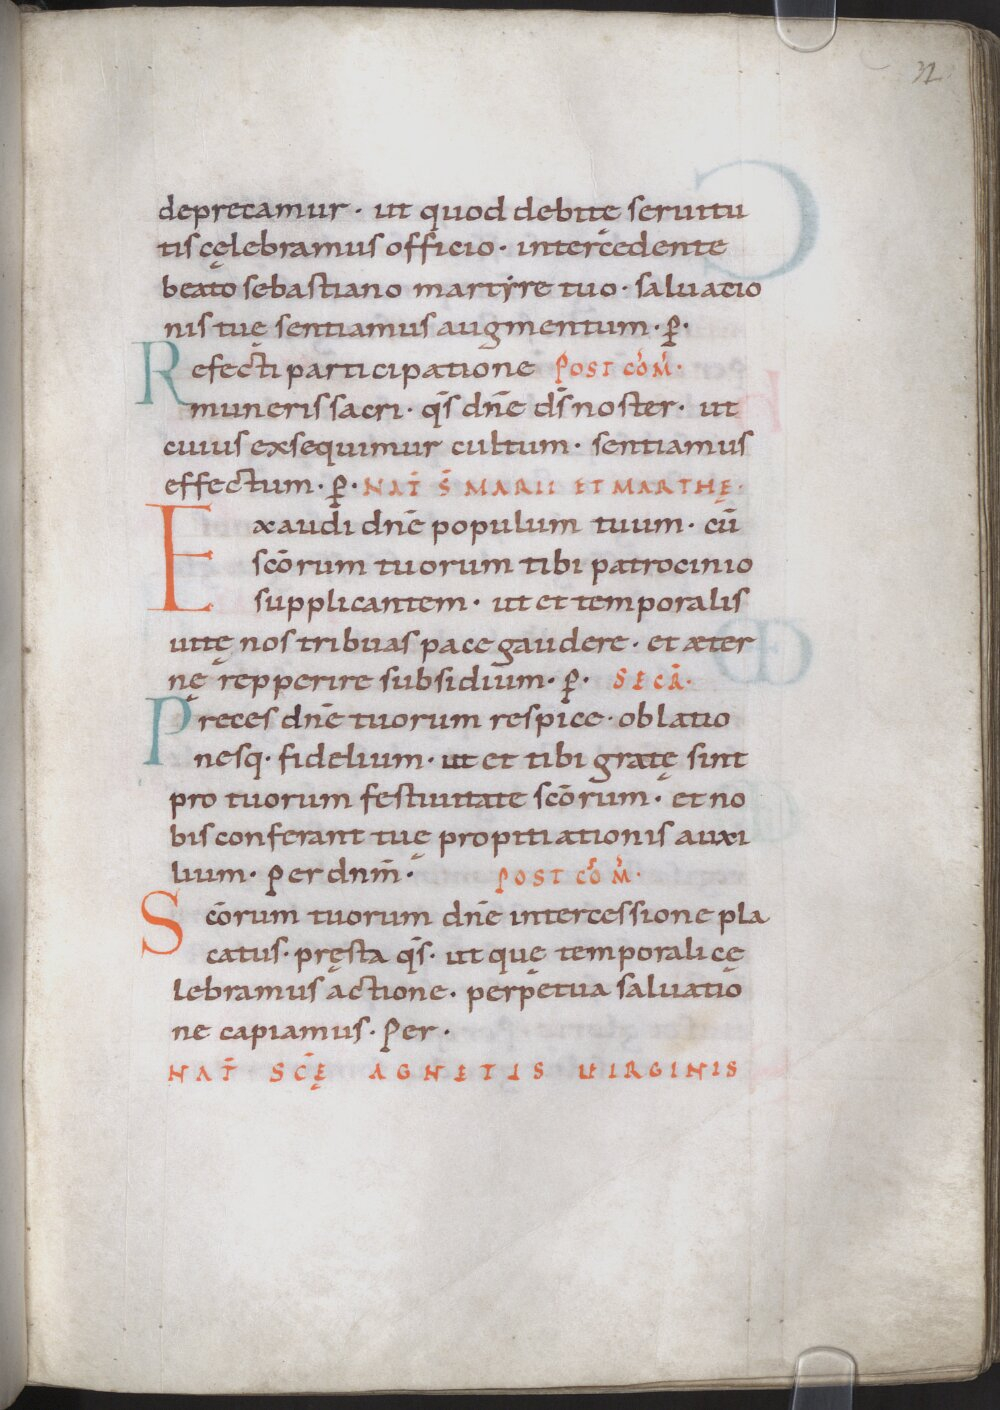 32
deprecamur · ut quod debitę seruitu
tis cęlebramus officio · intercedente
beato sebastiano martyre tuo · saluatio
nis tuę sentiamus augmentum · p̱ ·
Refecti participatione POST CO̅M̅ ·
muneris sacri · q̅s dn̅e ds̅ noster · ut
cuius exsequimur cultum · sentiamus
effectum · p̱ · NAT̅ S̅ MARII ET MARTHĘ ·
Exaudi dn̅e populum tuum · cu̅
sco̅rum tuorum tibi patrocinio
supplicantem · ut et temporalis
uitę nos tribuas pace gaudere · et æter
nę repperire subsidium · p̱ · SECR̅ ·
Preces dn̅e tuorum respice · oblatio
nesq · fidelium · ut et tibi gratę sint
pro tuorum festiuitate sco̅rum · et no
bis conferant tuę propitiationis auxi
lium · Per dnm̅ · POST CO̅M̅ ·
Sco̅rum tuorum dn̅e intercessione pla
catus · pręsta q̅s · ut quę temporali cę
lebramus actione · perpetua saluatio
ne capiamus · Per ·
NAT̅ SC̅Ę AGNETIS UIRGINIS